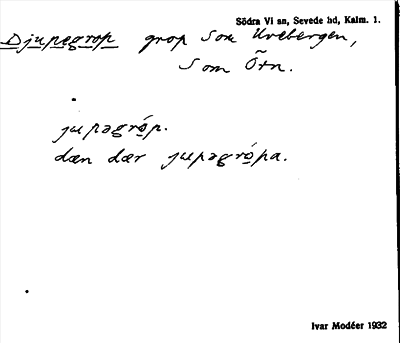 Södra Vi sn, Sevede hd, Kalm. 1.
Djupegrop grop som Uvebergen,
som Õtn.
jupəgróp.
dæn dær jupəgrópa.
Ivar Modéer 1932